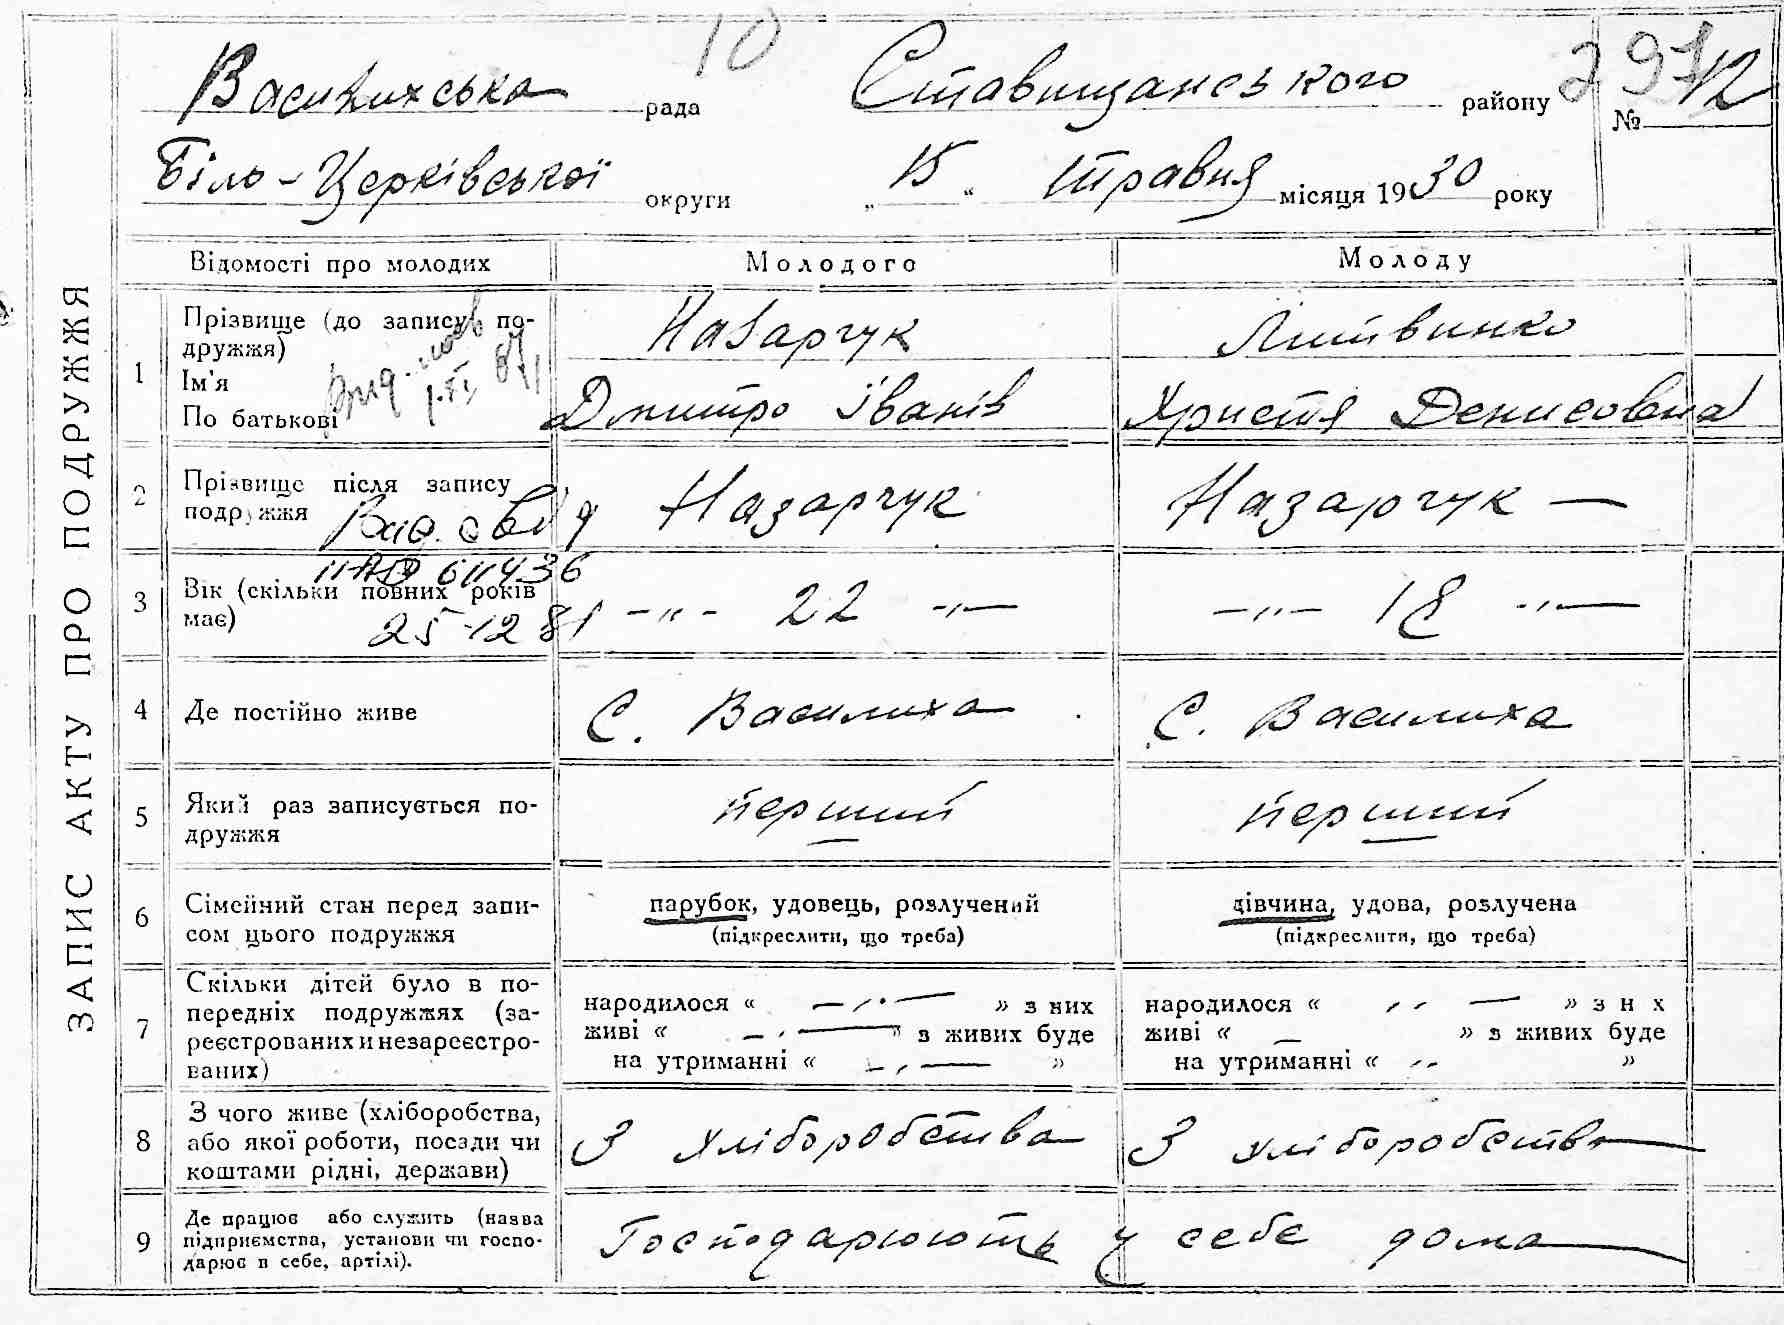 10
Василихська рада Ставищанського району 297
№ 12
Біло-Церківської округи „15“ травня місяця 1930 року
ЗАПИС АКТУ ПРО ПОДРУЖЖЯ
Відомості про молодих Молодого Молоду
1 Прізвище (до запису по-
дружжя)
Ім'я
По батькові
Назарчук Литвинко
Дмитро Іванів Христя Денисовна
2 Прізвище після запису
подружжя
Назарчук Назарчук —
3 Вік (скільки повних років
має)
25-12 81
—„— 22 —„— —„— 18 —„—
4 Де постійно живе С. Василиха С. Василиха
5 Який раз записується по-
дружжя
перший перший
6 Сімейний стан перед запи-
сом цього подружжя
парубок, удовець, розлучений дівчина, удова, розлучена
(підкреслити, що треба) (підкреслити, що треба)
7 Скільки дітей було в по-
передніх подружжях (за-
реєстрованих и незареєстро-
ваних)
народилося « — » з них народилося « — » з н х
живі « — » з живих буде живі « — » з живих буде
на утриманні « — » на утриманні « „ »
8 З чого живе (хліборобства,
або якої роботи, посади чи
коштами рідні, держави)
З хліборобства З хліборобства
9 Де працює або служить (назва
підприємства, установи чи госпо-
дарює в себе, артілі).
Господарюють у себе дома